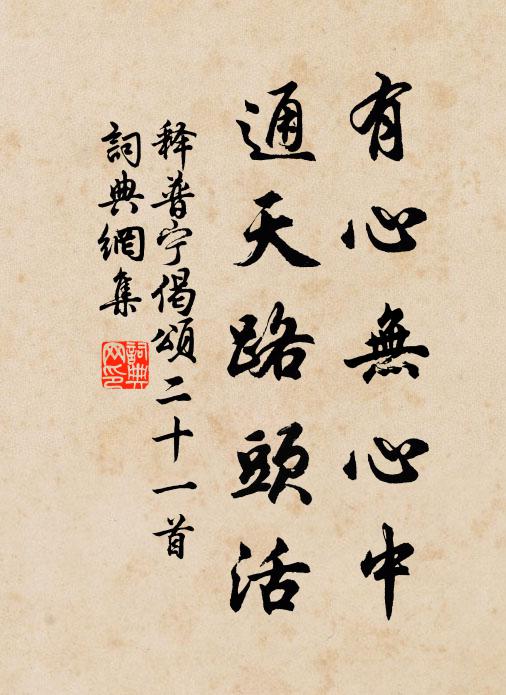 有心無心中
通天路頭活
释普宁偈頌二十一首
詞典網集
詞典网印